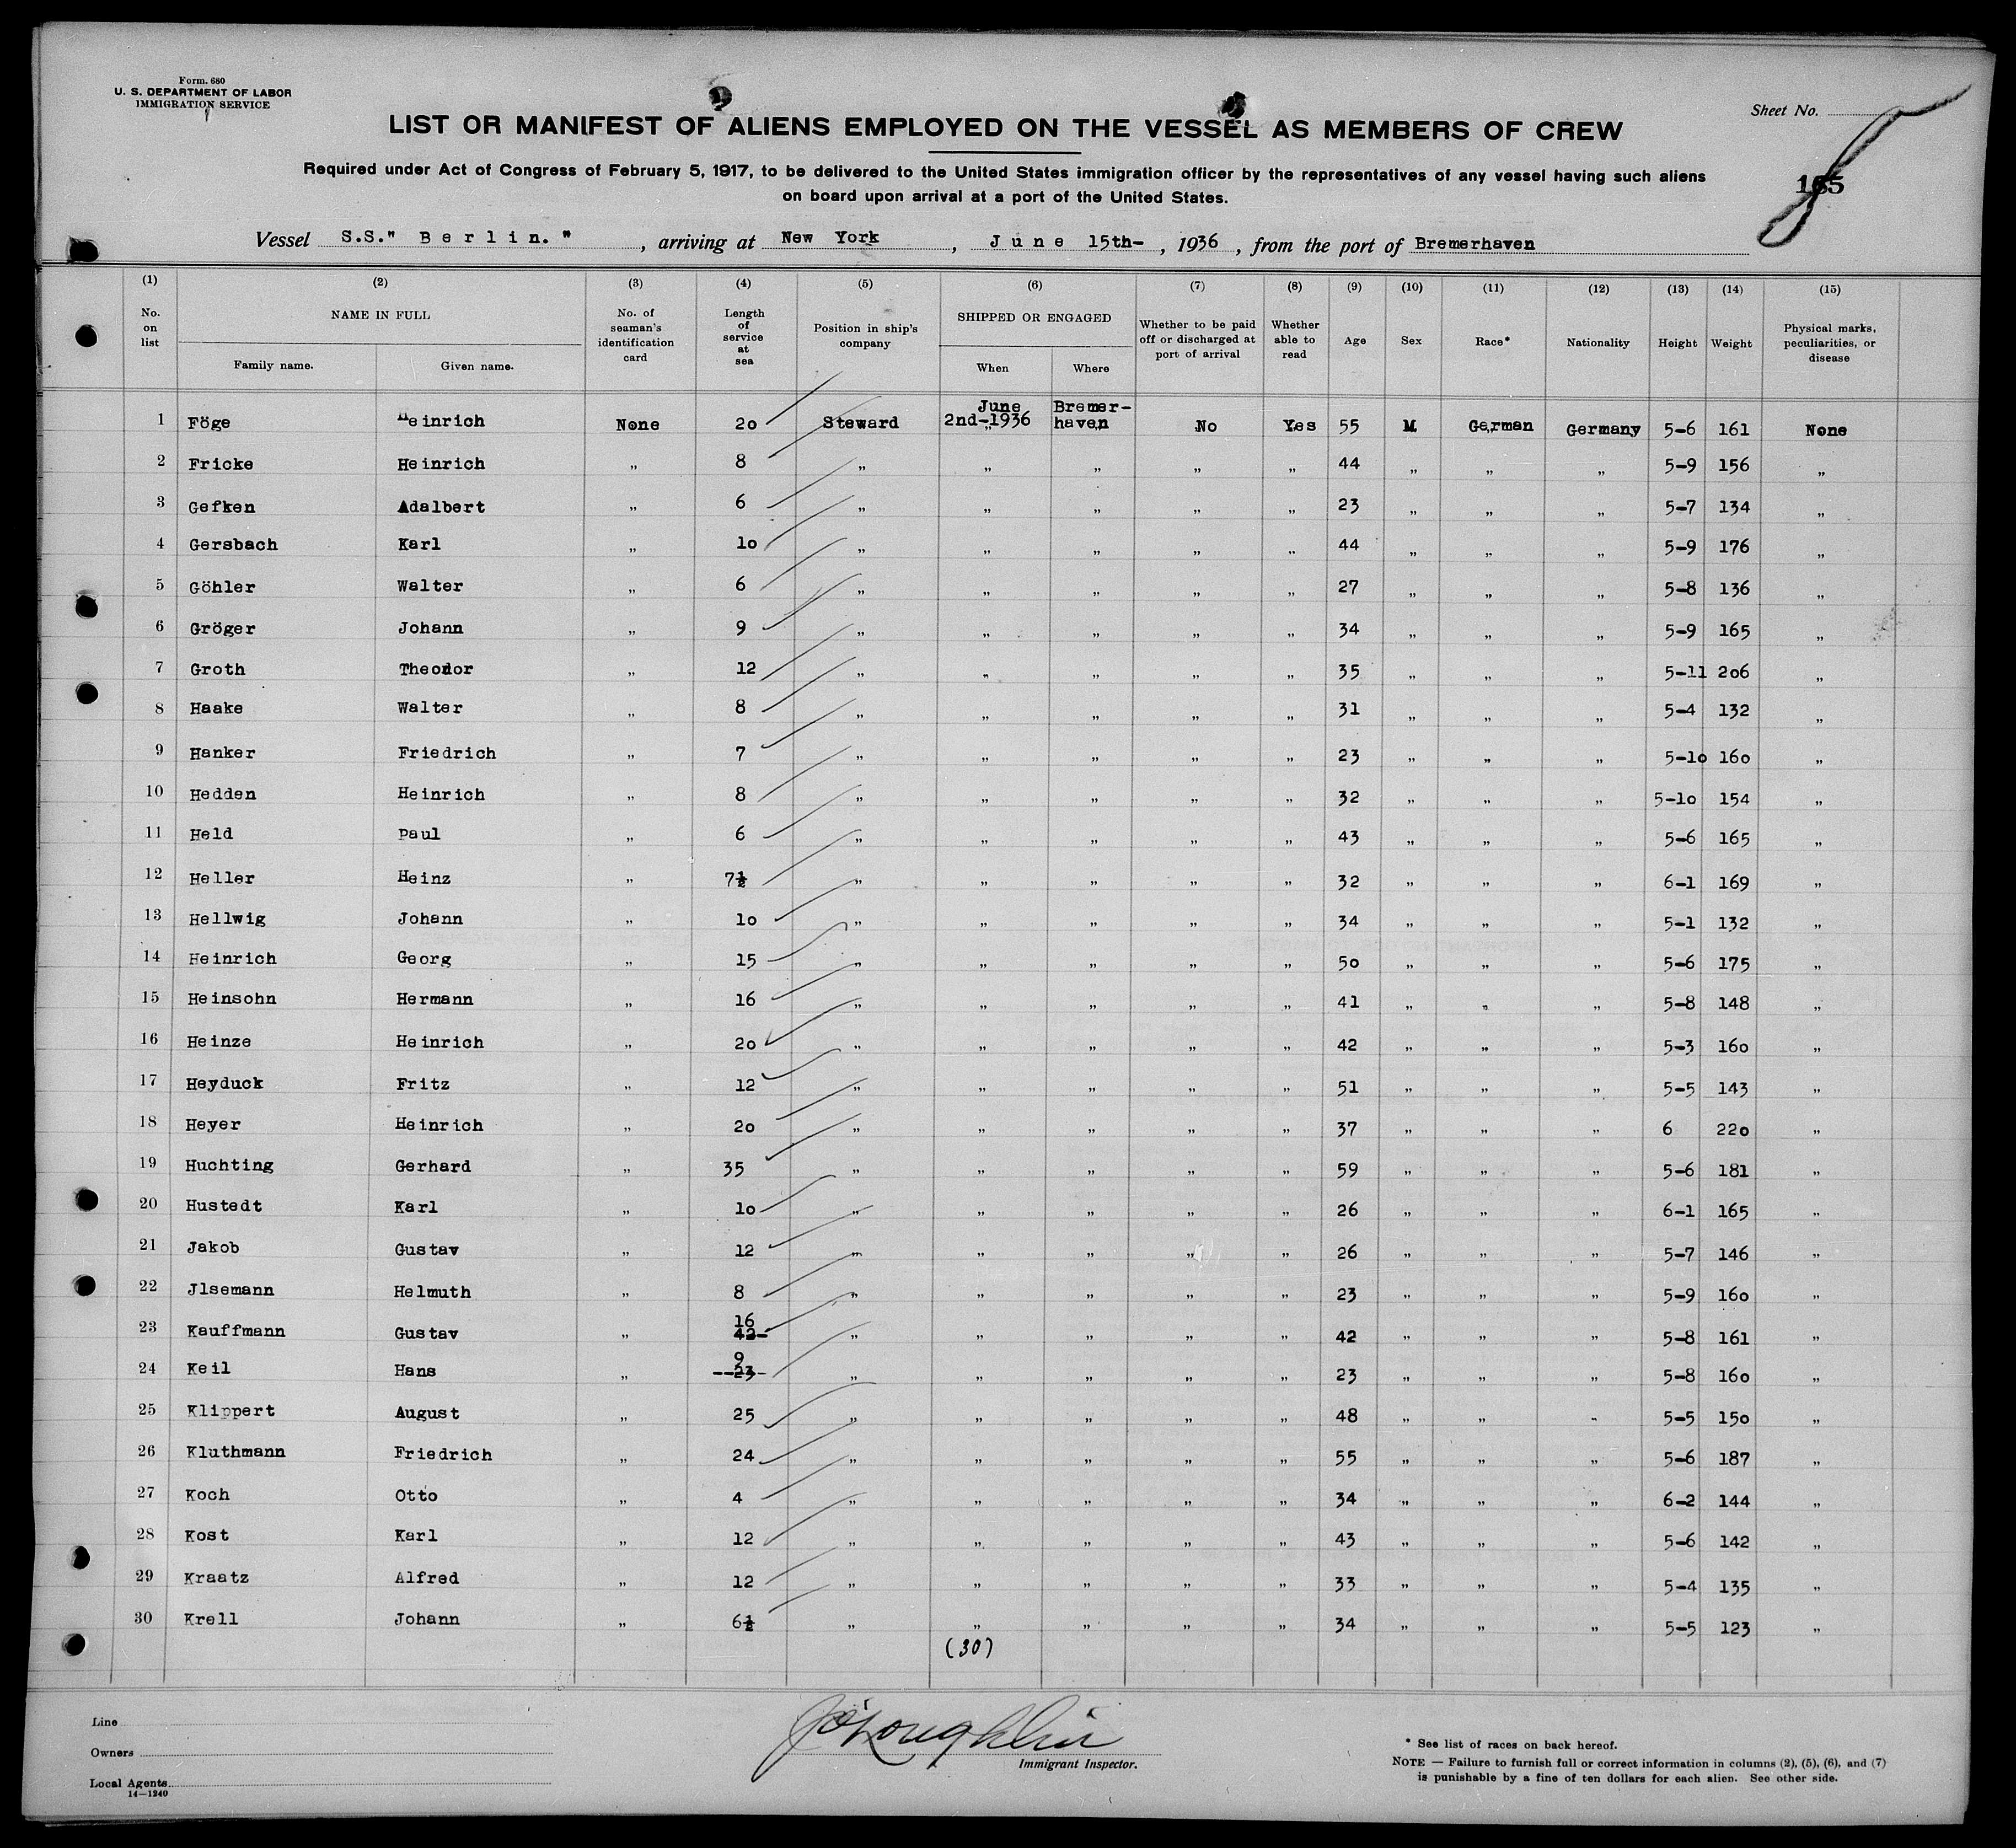 Form. 680
U. S. DEPARTMENT OF LABOR
IMMIGRATION SERVICE
Sheet No.
LIST OR MANIFEST OF ALIENS EMPLOYED ON THE VESSEL AS MEMBERS OF CREW
Required under Act of Congress of February 5, 1917, to be delivered to the United States immigration officer by the representatives of any vessel having such aliens
on board upon arrival at a port of the United States.
Vessel S.S." Berlin. ", arriving at New York, June 15th-, 1936, from the port of Bremerhaven
(1) (2) (3) (4) (5) (6) (7) (8) (9) (10) (11) (12) (13) (14) (15)
No. on list NAME IN FULL Family name. Given name. No. of seaman's identification card Length of service at sea Position in ship's company SHIPPED OR ENGAGED When Where Whether to be paid off or discharged at port of arrival Whether able to read Age Sex Race* Nationality Height Weight Physical marks, peculiarities, or disease
1 Föge Heinrich None 2o Steward June 2nd-1936 Bremer-haven No Yes 55 M. German Germany 5-6 161 None
2 Fricke Heinrich „ 8 „ „ „ „ „ 44 „ „ „ 5-9 156 „
3 Gefken Adalbert „ 6 „ „ „ „ „ 23 „ „ „ 5-7 134 „
4 Gersbach Karl „ 1o „ „ „ „ „ 44 „ „ „ 5-9 176 „
5 Göhler Walter „ 6 „ „ „ „ „ 27 „ „ „ 5-8 136 „
6 Gröger Johann „ 9 „ „ „ „ „ 34 „ „ „ 5-9 165 „
7 Groth Theodor „ 12 „ „ „ „ „ 35 „ „ „ 5-11 2o6 „
8 Haake Walter „ 8 „ „ „ „ „ 31 „ „ „ 5-4 132 „
9 Hanker Friedrich „ 7 „ „ „ „ „ 23 „ „ „ 5-1o 16o „
10 Hedden Heinrich „ 8 „ „ „ „ „ 32 „ „ „ 5-1o 154 „
11 Held Paul „ 6 „ „ „ „ „ 43 „ „ „ 5-6 165 „
12 Heller Heinz „ 7½ „ „ „ „ „ 32 „ „ „ 6-1 169 „
13 Hellwig Johann „ 1o „ „ „ „ „ 34 „ „ „ 5-1 132 „
14 Heinrich Georg „ 15 „ „ „ „ „ 5o „ „ „ 5-6 175 „
15 Heinsohn Hermann „ 16 „ „ „ „ „ 41 „ „ „ 5-8 148 „
16 Heinze Heinrich „ 2o „ „ „ „ „ 42 „ „ „ 5-3 16o „
17 Heyduck Fritz „ 12 „ „ „ „ „ 51 „ „ „ 5-5 143 „
18 Heyer Heinrich „ 2o „ „ „ „ „ 37 „ „ „ 6 22o „
19 Huchting Gerhard „ 35 „ „ „ „ „ 59 „ „ „ 5-6 181 „
20 Hustedt Karl „ 1o „ „ „ „ „ 26 „ „ „ 6-1 165 „
21 Jakob Gustav „ 12 „ „ „ „ „ 26 „ „ „ 5-7 146 „
22 Jlsemann Helmuth „ 8 „ „ „ „ „ 23 „ „ „ 5-9 16o „
23 Kauffmann Gustav „ 16 42- „ „ „ „ „ 42 „ „ „ 5-8 161 „
24 Keil Hans „ 9 --23- „ „ „ „ „ 23 „ „ „ 5-8 16o „
25 Klippert August „ 25 „ „ „ „ „ 48 „ „ „ 5-5 15o „
26 Kluthmann Friedrich „ 24 „ „ „ „ „ 55 „ „ „ 5-6 187 „
27 Koch Otto „ 4 „ „ „ „ „ 34 „ „ „ 6-2 144 „
28 Kost Karl „ 12 „ „ „ „ „ 43 „ „ „ 5-6 142 „
29 Kraatz Alfred „ 12 „ „ „ „ „ 33 „ „ „ 5-4 135 „
30 Krell Johann „ 6½ „ „ „ „ „ 34 „ „ „ 5-5 123 „
(30)
Line
Owners
Local Agents
14—1240
Immigrant Inspector.
* See list of races on back hereof.
NOTE — Failure to furnish full or correct information in columns (2), (5), (6), and (7)
is punishable by a fine of ten dollars for each alien. See other side.